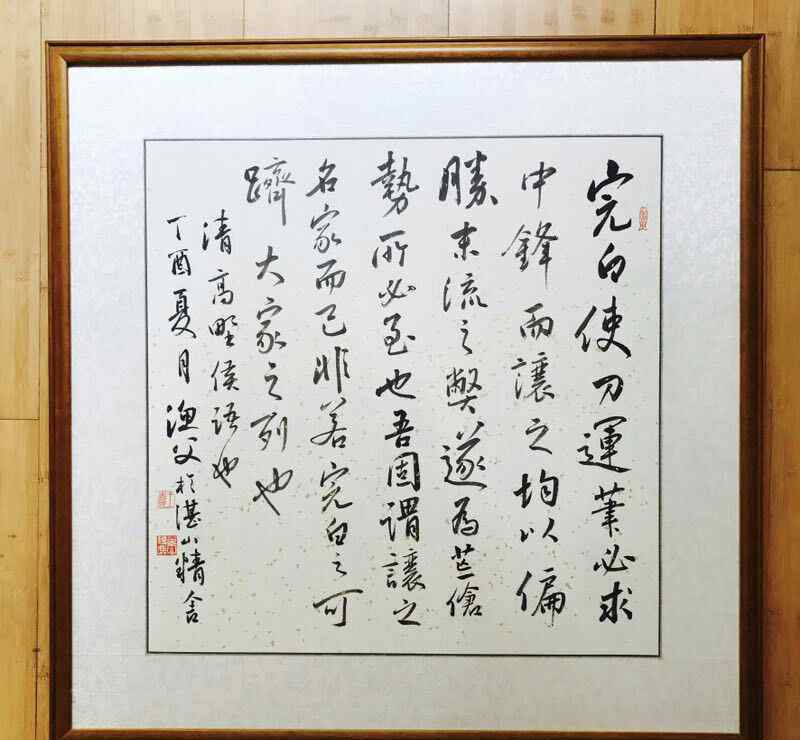 完白使刀運筆必求
中鋒而讓之均以偏
勝末流之獘遂為荒傖
勢所必至也吾固謂讓之
名家而已非若完白之可
躋大家之列也
清高野侯語也
丁酉夏月漁父於湛山精舍